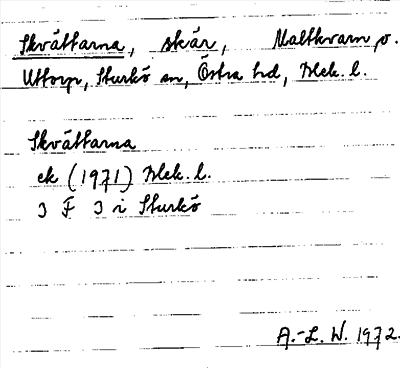 Skvättarna, skär, Maltkvarn o.
Uttorp, Sturkö sn, Östra hd, Blek. l.
Skvättarna
ek (1971) Blek. l.
3 F 3 i Sturkö
A.-L. W. 1972.